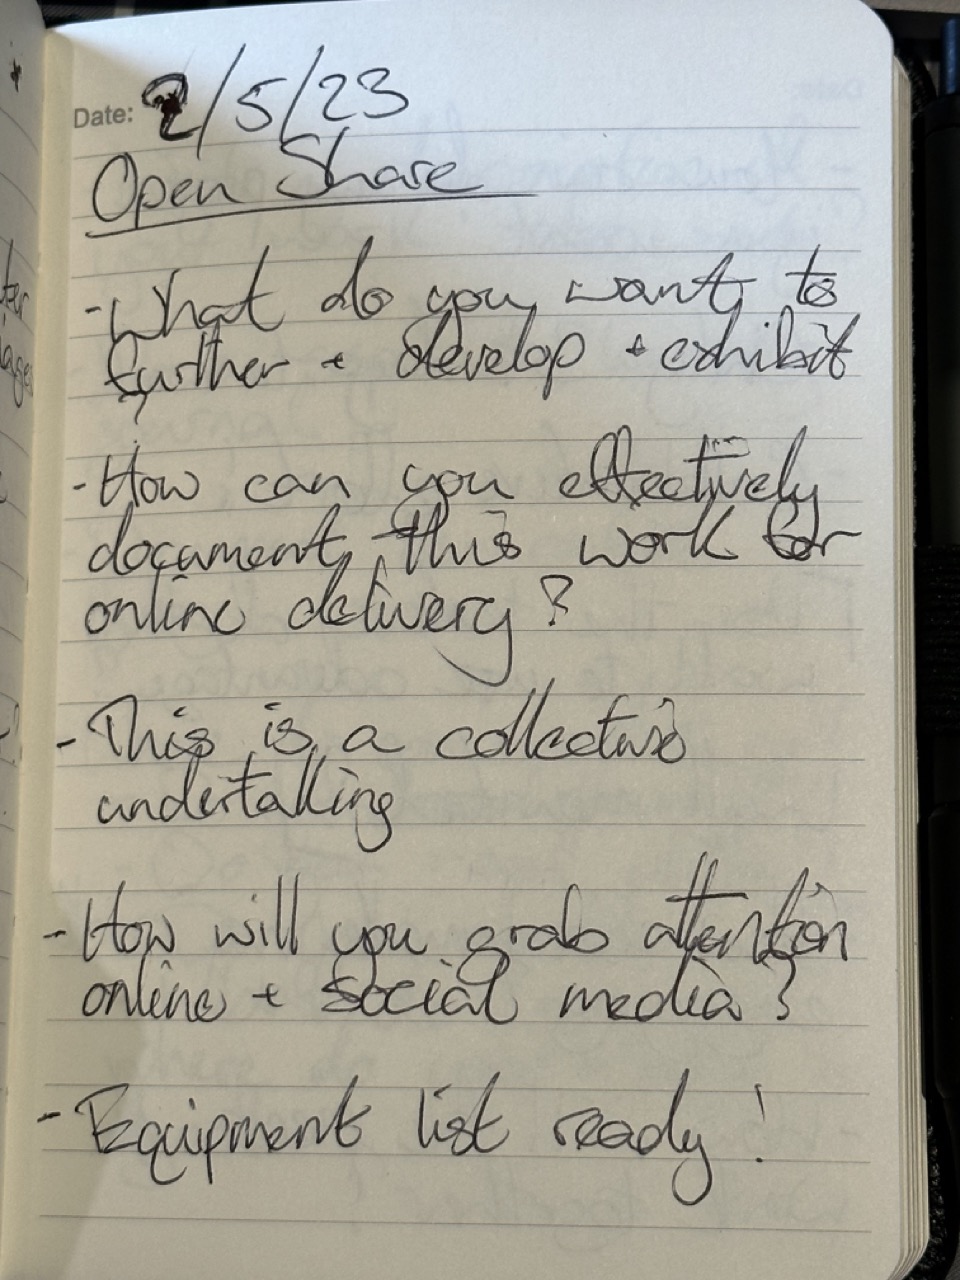 Date: 2/5/23
Open Share
- What do you want to
further + develop + exhibit
?
- How can you effectively
document this work for
online delivery?
- This is a collective
undertaking
- How will you grab attention
online + social media?
- Equipment list ready!